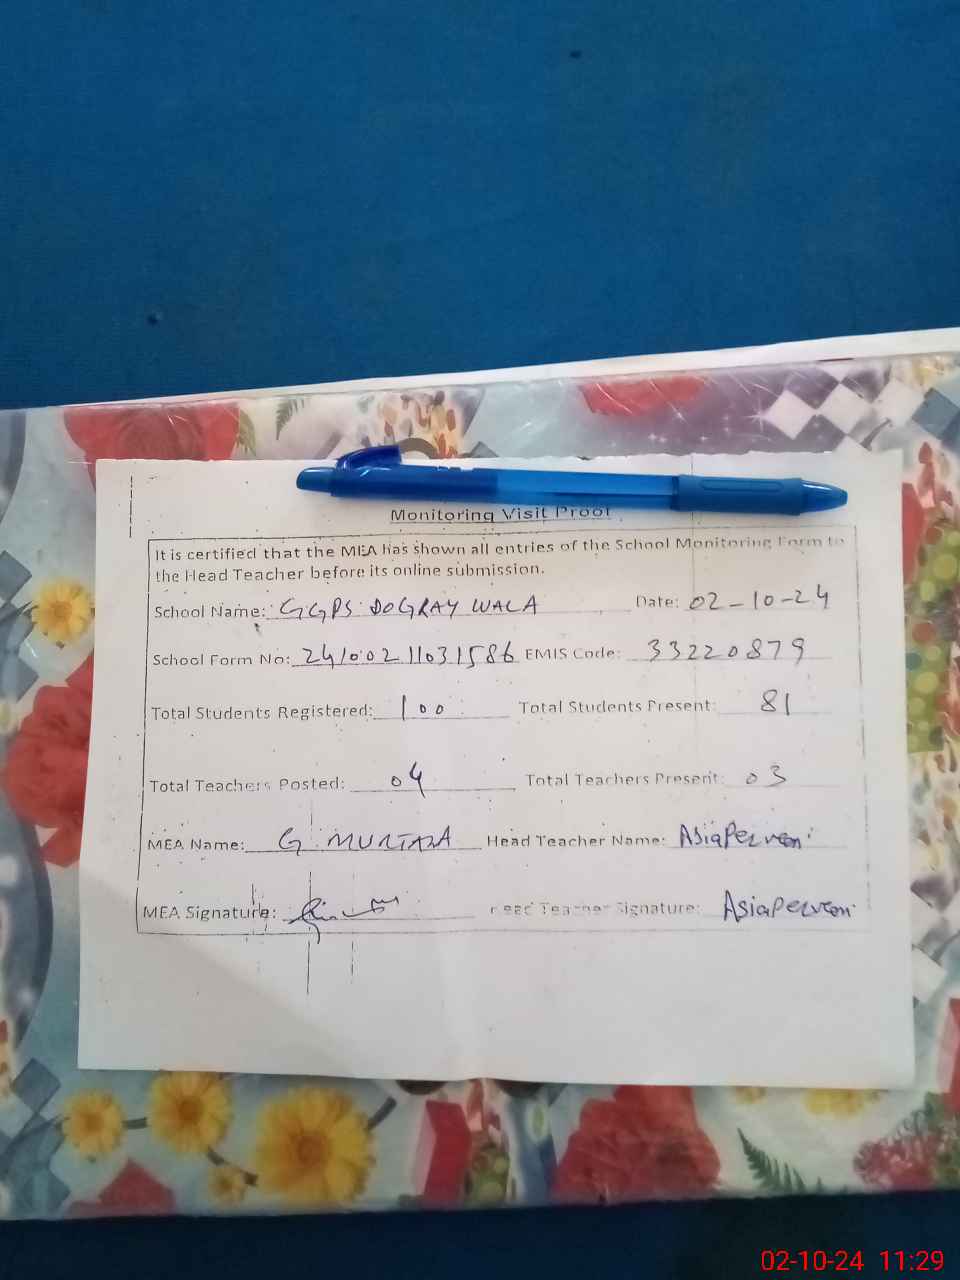 Monitoring Visit Proof
It is certified that the MEA has shown all entries of the School Monitoring Form to
the Head Teacher before its online submission.
School Name: GGPS DOGRAY WALA Date: 02-10-24
School Form No: 24100211031586 EMIS Code: 33220879
Total Students Registered: 100 Total Students Present: 81
Total Teachers Posted: 04 Total Teachers Present: 03
MEA Name: G. MURTAZA Head Teacher Name: Asia Perveen
MEA Signature: Head Teacher Signature: Asia Perveen
02-10-24 11:29